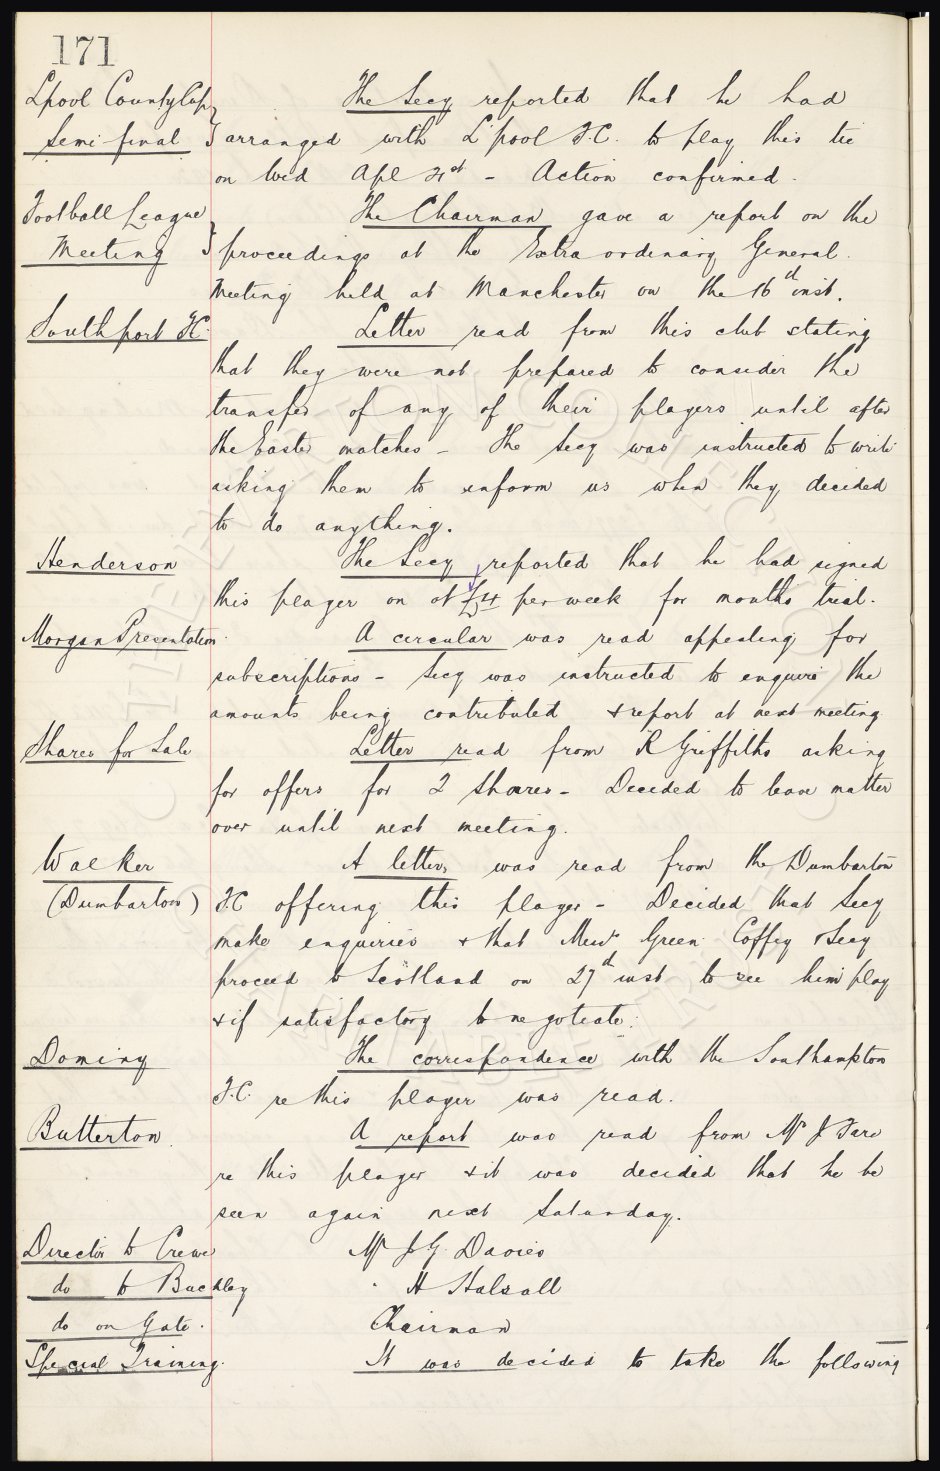 171
L'pool County Cup The Secy reported that he had
Semi-final } arranged with L'pool F.C. to play this tie
on Wed Apl 21st - Action confirmed.
Football League The Chairman gave a report on the
Meeting } proceedings at the Extraordinary General
Meeting held at Manchester on the 16th inst.
Southport F.C. Letter read from this club stating
that they were not prepared to consider the
transfer of any of their players until after
the Easter matches - The Secy was instructed to write
asking them to inform us when they decided
to do anything.
Henderson The Secy reported that he had signed
this player on at £4 per week for months trial.
Morgan Presentation. A circular was read appealing for
subscriptions - Secy was instructed to enquire the
amounts being contributed & report at next meeting
Shares for Sale Letter read from R Griffiths asking
for offers for 2 Shares - Decided to leave matter
over until next meeting.
Walker A letter, was read from the Dumbarton
(Dumbarton) F.C offering this player - Decided that Secy
make enquiries & that Messrs Green Coffey & Secy
proceed to Scotland on 27d inst to see him play
& if satisfactory to negotiate.
Dominy The correspondence with the Southampton
F.C. re this player was read.
Butterton. A report was read from Mr J Fare
re this player & it was decided that he be
seen again next Saturday.
Director to Crewe Mr J.G. Davies
do to Buckley " H Halsall
do on Gate. Chairman
Special Training. It was decided to take the following